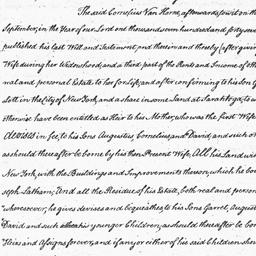 The said Cornelius Van Horne, afterwards to wit on the
September, in the Year of our Lord one thousand seven hundred and forty seven
published his last Will and Testament, and therein and thereby (after givin
Wife during her Widowhood, and a third part of the Rents and Income of th
nal and personal Estate to her for Life, and after confirming to his Son G
Lott in the City of New York, and a share in some Land at Saratoga, to w
otherwise have been entitled as Heir to his Mother, who was the first Wife
devises in fee, to his Sons Augustus, Cornelius, and David, and such o
as should thereafter be borne by his then Present Wife, All his Land wi
New York, with the Buildings and Improvements thereon, which he bou
seph Latham; And all the Residue of his Estate, both real and person
whatsoever, he gives devises and bequeathes to his Sons Garret, August
David and such other his younger Children, as should thereafter be bor
Heirs and Assigns forever, and if any or either of his said Children shou